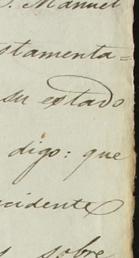 . Manuel
stamenta=
su estado
digo: que
cidente
sobre